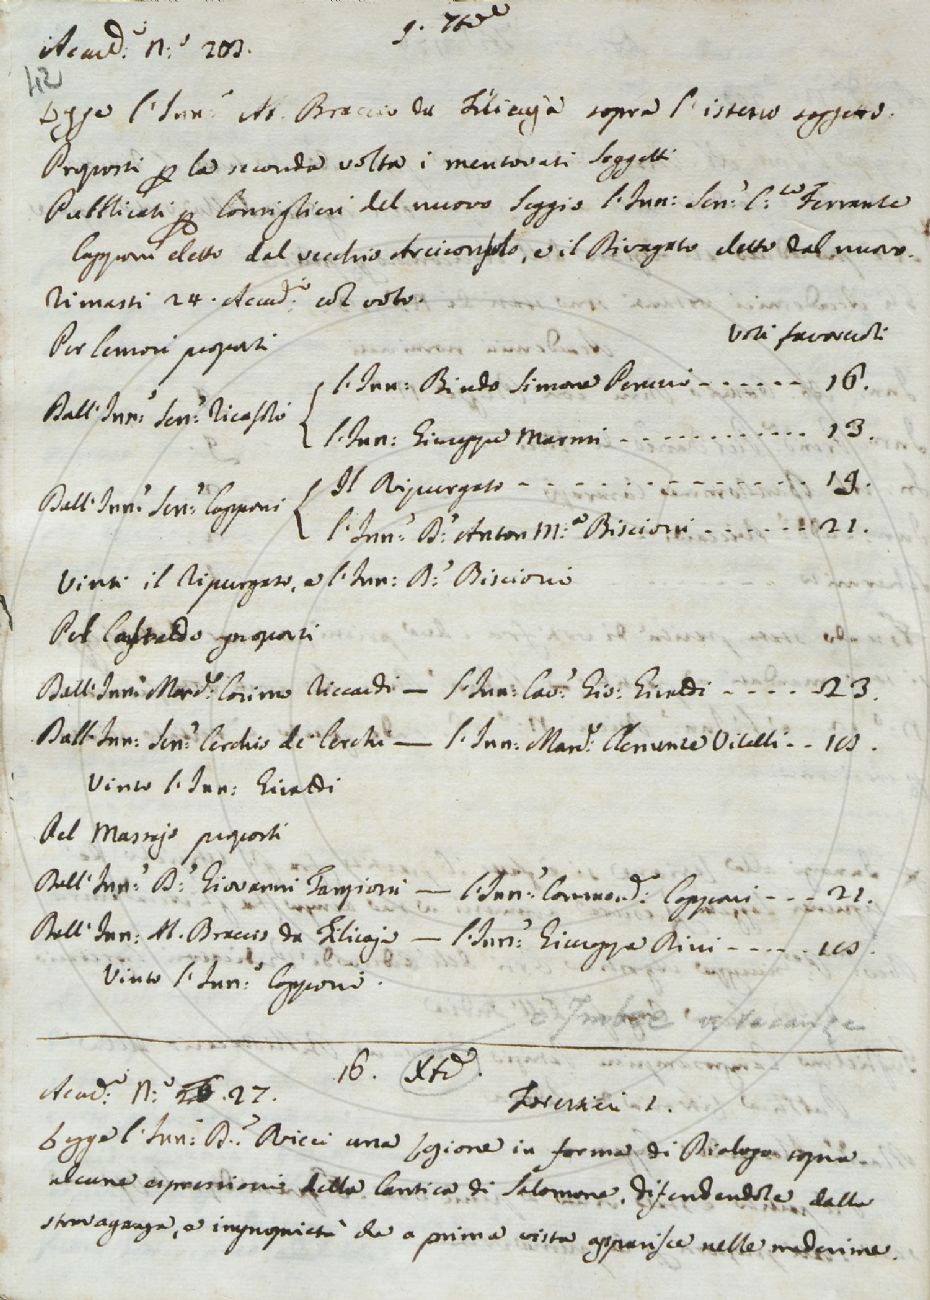 9. 7bre
Accad.i N.o 203.
42
Legge l'Inn.o M. Braccio da Filicaja sopra l'istesso soggetto.
Proposti p la seconda volta i mentovati Soggetti
Pubblicati p Consiglieri del nuovo Seggio l'Inn: Sen.r C.te Ferrante
Capponi eletto dal vecchio Arciconsolo, e il Divagato eletto dal nuovo.
Rimasti 24. Accad.i col voto.
Per Censori proposti
Voti favorevoli
Dall'Inn.o Sen.r Ricasoli
l'Inn: Bindo Simone Peruzzi - - - - - - 16.
l'Inn: Giuseppe Marmi - - - - - - - - - - 13.
Dall'Inn.o Sen.r Capponi
Il Ripurgato - - - - - - - - - - - - 19.
l'Inn.o D.r Anton M.a Biscioni - - - - - - 21.
Vinti il Ripurgato, e l'Inn: D.r Biscioni
Pel Castaldo proposti
Dall'Inn.o March.e Cosimo Riccardi — l'Inn: Cav.r Gio: Giraldi - - - - - 23.
Dall'Inn: Sen.r Cerchio de Cerchi — l'Inn: March.e Clemente Vitelli - - 10.
Vinto l'Inn: Giraldi
Pel Massajo proposti
Dall'Inn.o D.r Giovanni Lampioni — l'Inn.o Commend.r Capponi - - - 21.
Dall'Inn: M. Braccio da Filicaja — l'Inn.o Giuseppe Dini - - - - 10.
Vinto l'Inn.o Capponi.
e vacanze
16. Xbre.
Accad.i N.o 27.
1.
Legge l'Inn.o D.r Ricci una lezione in forma di Dialogo sopra
alcune espressioni della Cantica di Salomone, difendendole dalla
stravaganza, e improprietà che a prima vista apparisce nelle medesime.